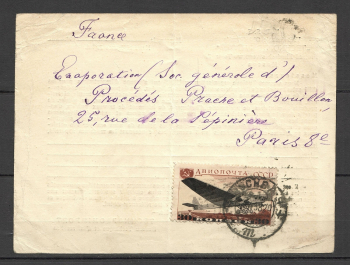 France
Evaporation (Soc. générale d')
Procédés Prache et Bouillon
25, rue de la Pépinière
Paris 8e
АВИОПОЧТА СССР
КОПЕЕК